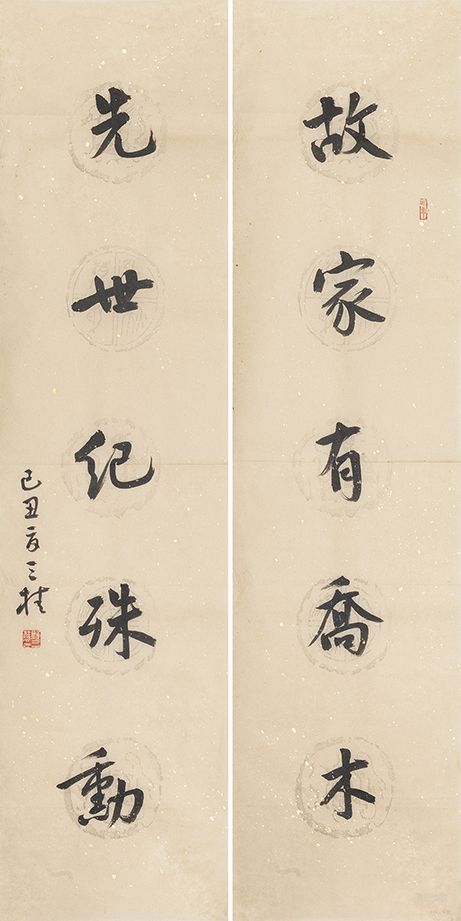 故家有喬木
先世纪殊勳
己丑夏三桂